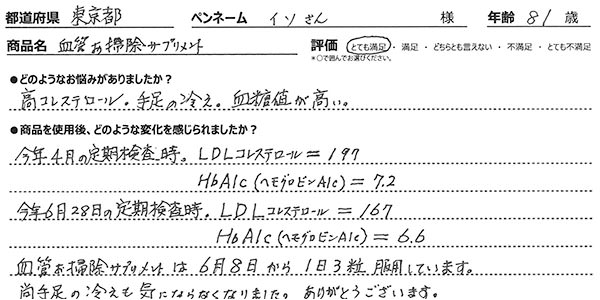 都道府県 東京都 ペンネーム イソさん 様 年齢 81 歳
商品名 血管お掃除サプリメント 評価 とても満足・満足・どちらとも言えない・不満足・とても不満足
*○で囲んでお選びください。
●どのようなお悩みがありましたか？
高コレステロール。手足の冷え。血糖値が高い。
●商品を使用後、どのような変化を感じられましたか？
今年4月の定期検査時。LDLコレステロール＝197
HbA1c(ヘモグロビンA1c)＝7.2
今年6月28日の定期検査時。LDLコレステロール＝167
HbA1c(ヘモグロビンA1c)＝6.6
血管お掃除サプリメントは6月8日から1日3粒服用しています。
尚手足の冷えも気にならなくなりました。ありがとうございます。